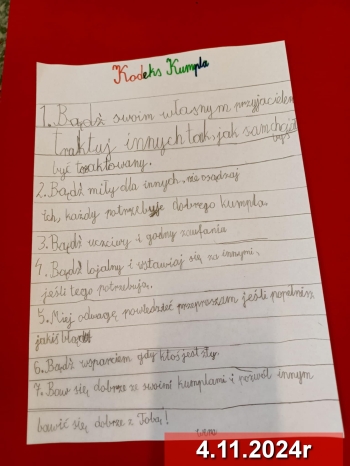 Kodeks Kumpla
1. Bądź swoim własnym przyjacielem
traktuj innych tak, jak sam chciał
byś
być traktowany.
2. Bądź miły dla innych, nie osądzaj
ich, każdy potrzebuje dobrego kumpla.
3. Bądź uczciwy i godny zaufania
4. Bądź lojalny i wstawiaj się za innymi,
jeśli tego potrzebują.
5. Miej odwagę powiedzieć przepraszam jeśli popełnisz
jakiś błąd
6. Bądź wsparciem gdy ktoś jest zły.
7. Baw się dobrze ze swoimi kumplami i pozwól innym
bawić się dobrze z Tobą!
4.11.2024r